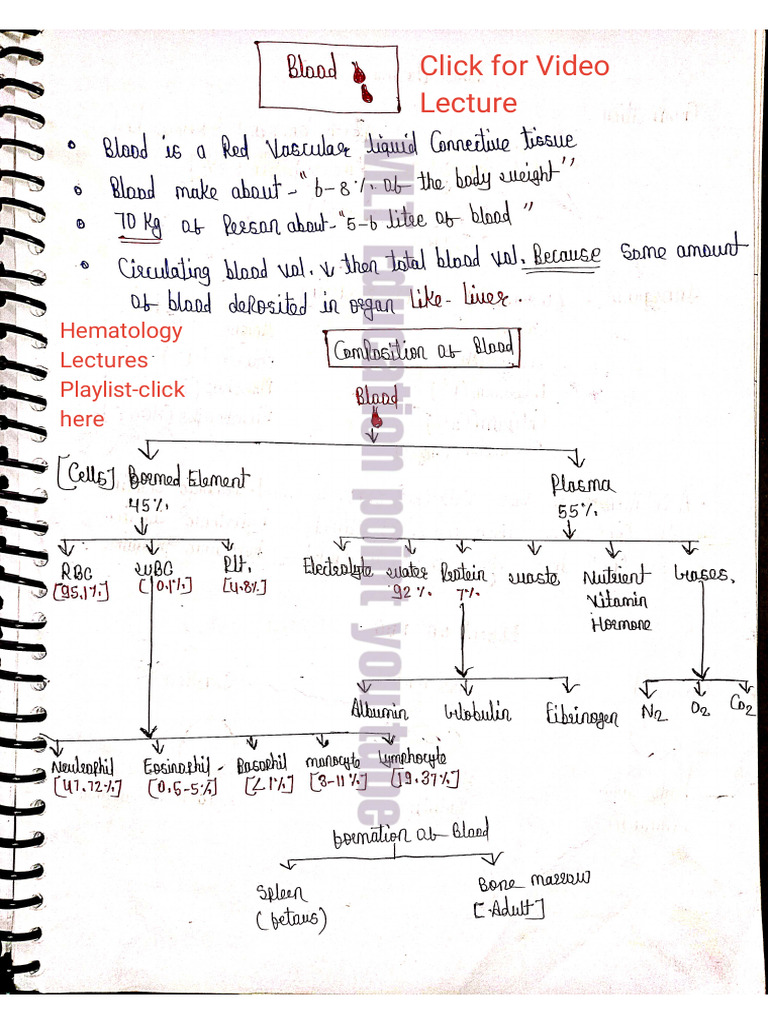 Blood
Click for Video
Lecture
Blood is a Red Vascular liquid Connective tissue
Blood make about - "6-8% of the body weight"
70 Kg of Person about - "5-6 litre of blood"
Circulating blood vol. ↓ then total blood vol. Because some amount
of blood deposited in organ Like - Liver.
Hematology
Lectures
Playlist-click
here
Composition of Blood
Blood
[Cells] Formed Element
45%
Plasma
55%
RBC WBC Plt. Electrolyte water Protein waste Nutrient Gases.
[95.1%] [0.1%] [4.8%] 92% 7% Vitamin
Hormone
Albumin Globulin Fibrinogen N2 O2 CO2
Neutrophil Eosinophil - Basophil monocyte Lymphocyte
[47.72%] [0.5-5%] [<1%] [3-11%] [19.37%]
formation of Blood
Spleen
(fetaus)
Bone marrow
[Adult]
MLT Education point youtube